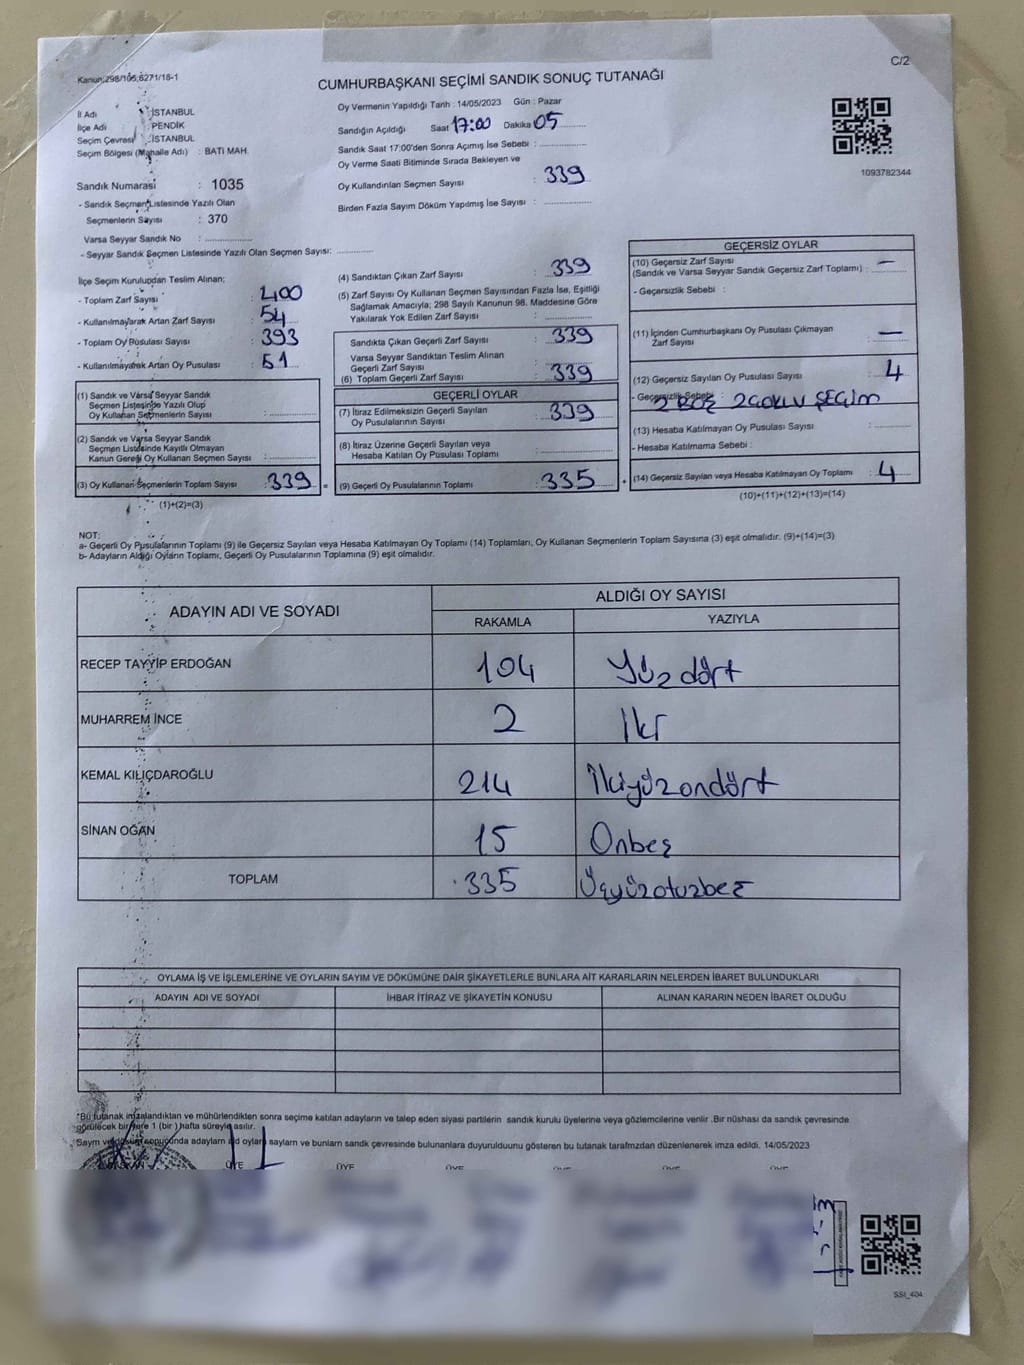 Kanun:298/105;6271/18-1
C/2
CUMHURBAŞKANI SEÇİMİ SANDIK SONUÇ TUTANAĞI
İl Adı : İSTANBUL
İlçe Adı : PENDİK
Seçim Çevresi : İSTANBUL
Seçim Bölgesi (Mahalle Adı) : BATI MAH.
Sandık Numarası : 1035
- Sandık Seçmen Listesinde Yazılı Olan
Seçmenlerin Sayısı : 370
Varsa Seyyar Sandık No :
- Seyyar Sandık Seçmen Listesinde Yazılı Olan Seçmen Sayısı:
Oy Vermenin Yapıldığı Tarih : 14/05/2023 Gün : Pazar
Sandığın Açıldığı Saat 17:00 Dakika 05
Sandık Saat 17:00'den Sonra Açımış İse Sebebi :
Oy Verme Saati Bitiminde Sırada Bekleyen ve
Oy Kullandırılan Seçmen Sayısı : 339
Birden Fazla Sayım Döküm Yapılmış İse Sayısı :
1093782344
İlçe Seçim Kurulundan Teslim Alınan;
- Toplam Zarf Sayısı : 400
- Kullanılmayarak Artan Zarf Sayısı : 54
- Toplam Oy Pusulası Sayısı : 393
- Kullanılmayarak Artan Oy Pusulası : 51
(1) Sandık ve Varsa Seyyar Sandık
Seçmen Listesinde Yazılı Olup
Oy Kullanan Seçmenlerin Sayısı :
(2) Sandık ve Varsa Seyyar Sandık
Seçmen Listesinde Kayıtlı Olmayan
Kanun Gereği Oy Kullanan Seçmen Sayısı :
(3) Oy Kullanan Seçmenlerin Toplam Sayısı : 339 =
(1)+(2)=(3)
(4) Sandıktan Çıkan Zarf Sayısı : 339
(5) Zarf Sayısı Oy Kullanan Seçmen Sayısından Fazla İse, Eşitliği
Sağlamak Amacıyla; 298 Sayılı Kanunun 98. Maddesine Göre
Yakılarak Yok Edilen Zarf Sayısı :
Sandıkta Çıkan Geçerli Zarf Sayısı : 339
Varsa Seyyar Sandıktan Teslim Alınan
Geçerli Zarf Sayısı :
(6) Toplam Geçerli Zarf Sayısı : 339
GEÇERLİ OYLAR
(7) İtiraz Edilmeksizin Geçerli Sayılan
Oy Pusulalarının Sayısı : 339
(8) İtiraz Üzerine Geçerli Sayılan veya
Hesaba Katılan Oy Pusulası Toplamı :
(9) Geçerli Oy Pusulalarının Toplamı : 335 +
GEÇERSİZ OYLAR
(10) Geçersiz Zarf Sayısı : —
(Sandık ve Varsa Seyyar Sandık Geçersiz Zarf Toplamı)
- Geçersizlik Sebebi :
(11) İçinden Cumhurbaşkanı Oy Pusulası Çıkmayan
Zarf Sayısı : —
(12) Geçersiz Sayılan Oy Pusulası Sayısı : 4
- Geçersizlik Sebebi : 2 BOŞ 2 ÇOKLU SEÇİM
(13) Hesaba Katılmayan Oy Pusulası Sayısı :
- Hesaba Katılmama Sebebi :
(14) Geçersiz Sayılan veya Hesaba Katılmayan Oy Toplamı : 4
(10)+(11)+(12)+(13)=(14)
NOT:
a- Geçerli Oy Pusulalarının Toplamı (9) ile Geçersiz Sayılan veya Hesaba Katılmayan Oy Toplamı (14) Toplamları, Oy Kullanan Seçmenlerin Toplam Sayısına (3) eşit olmalıdır. (9)+(14)=(3)
b- Adayların Aldığı Oyların Toplamı, Geçerli Oy Pusulalarının Toplamına (9) eşit olmalıdır.
ADAYIN ADI VE SOYADI
ALDIĞI OY SAYISI
RAKAMLA YAZIYLA
RECEP TAYYİP ERDOĞAN 104 Yüz dört
MUHARREM İNCE 2 İki
KEMAL KILIÇDAROĞLU 214 İkiyüzondört
SİNAN OĞAN 15 Onbeş
TOPLAM 335 Üçyüzotuzbeş
OYLAMA İŞ VE İŞLEMLERİNE VE OYLARIN SAYIM VE DÖKÜMÜNE DAİR ŞİKAYETLERLE BUNLARA AİT KARARLARIN NELERDEN İBARET BULUNDUKLARI
ADAYIN ADI VE SOYADI İHBAR İTİRAZ VE ŞİKAYETİN KONUSU ALINAN KARARIN NEDEN İBARET OLDUĞU
*Bu tutanak imzalandıktan ve mühürlendikten sonra seçime katılan adayların ve talep eden siyasi partilerin sandık kurulu üyelerine veya gözlemcilerine verilir .Bir nüshası da sandık çevresinde
görülecek bir yere 1 (bir ) hafta süreyle asılır.
Sayım ve döküm sonucunda adayların ald oyları saylam ve bunların sandık çevresinde bulunanlara duyurulduunu gösteren bu tutanak tarafmzdan düzenlenerek imza edildi. 14/05/2023
BAŞKAN ÜYE ÜYE ÜYE ÜYE ÜYE ÜYE
SSI_404